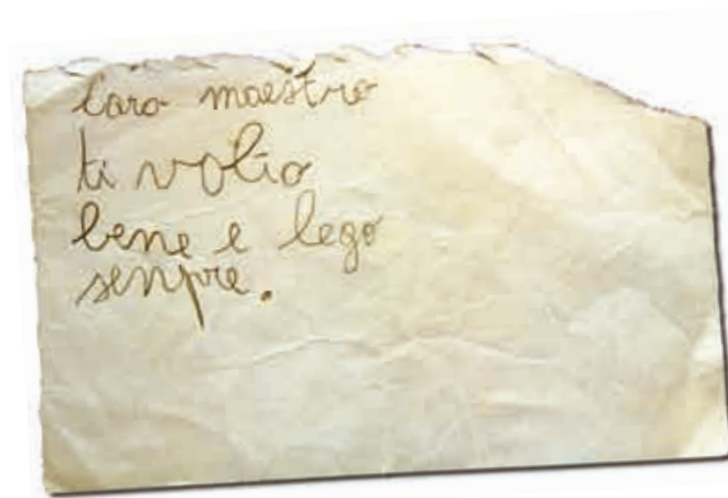 Caro maestro
ti volio
bene e lego
senpre.